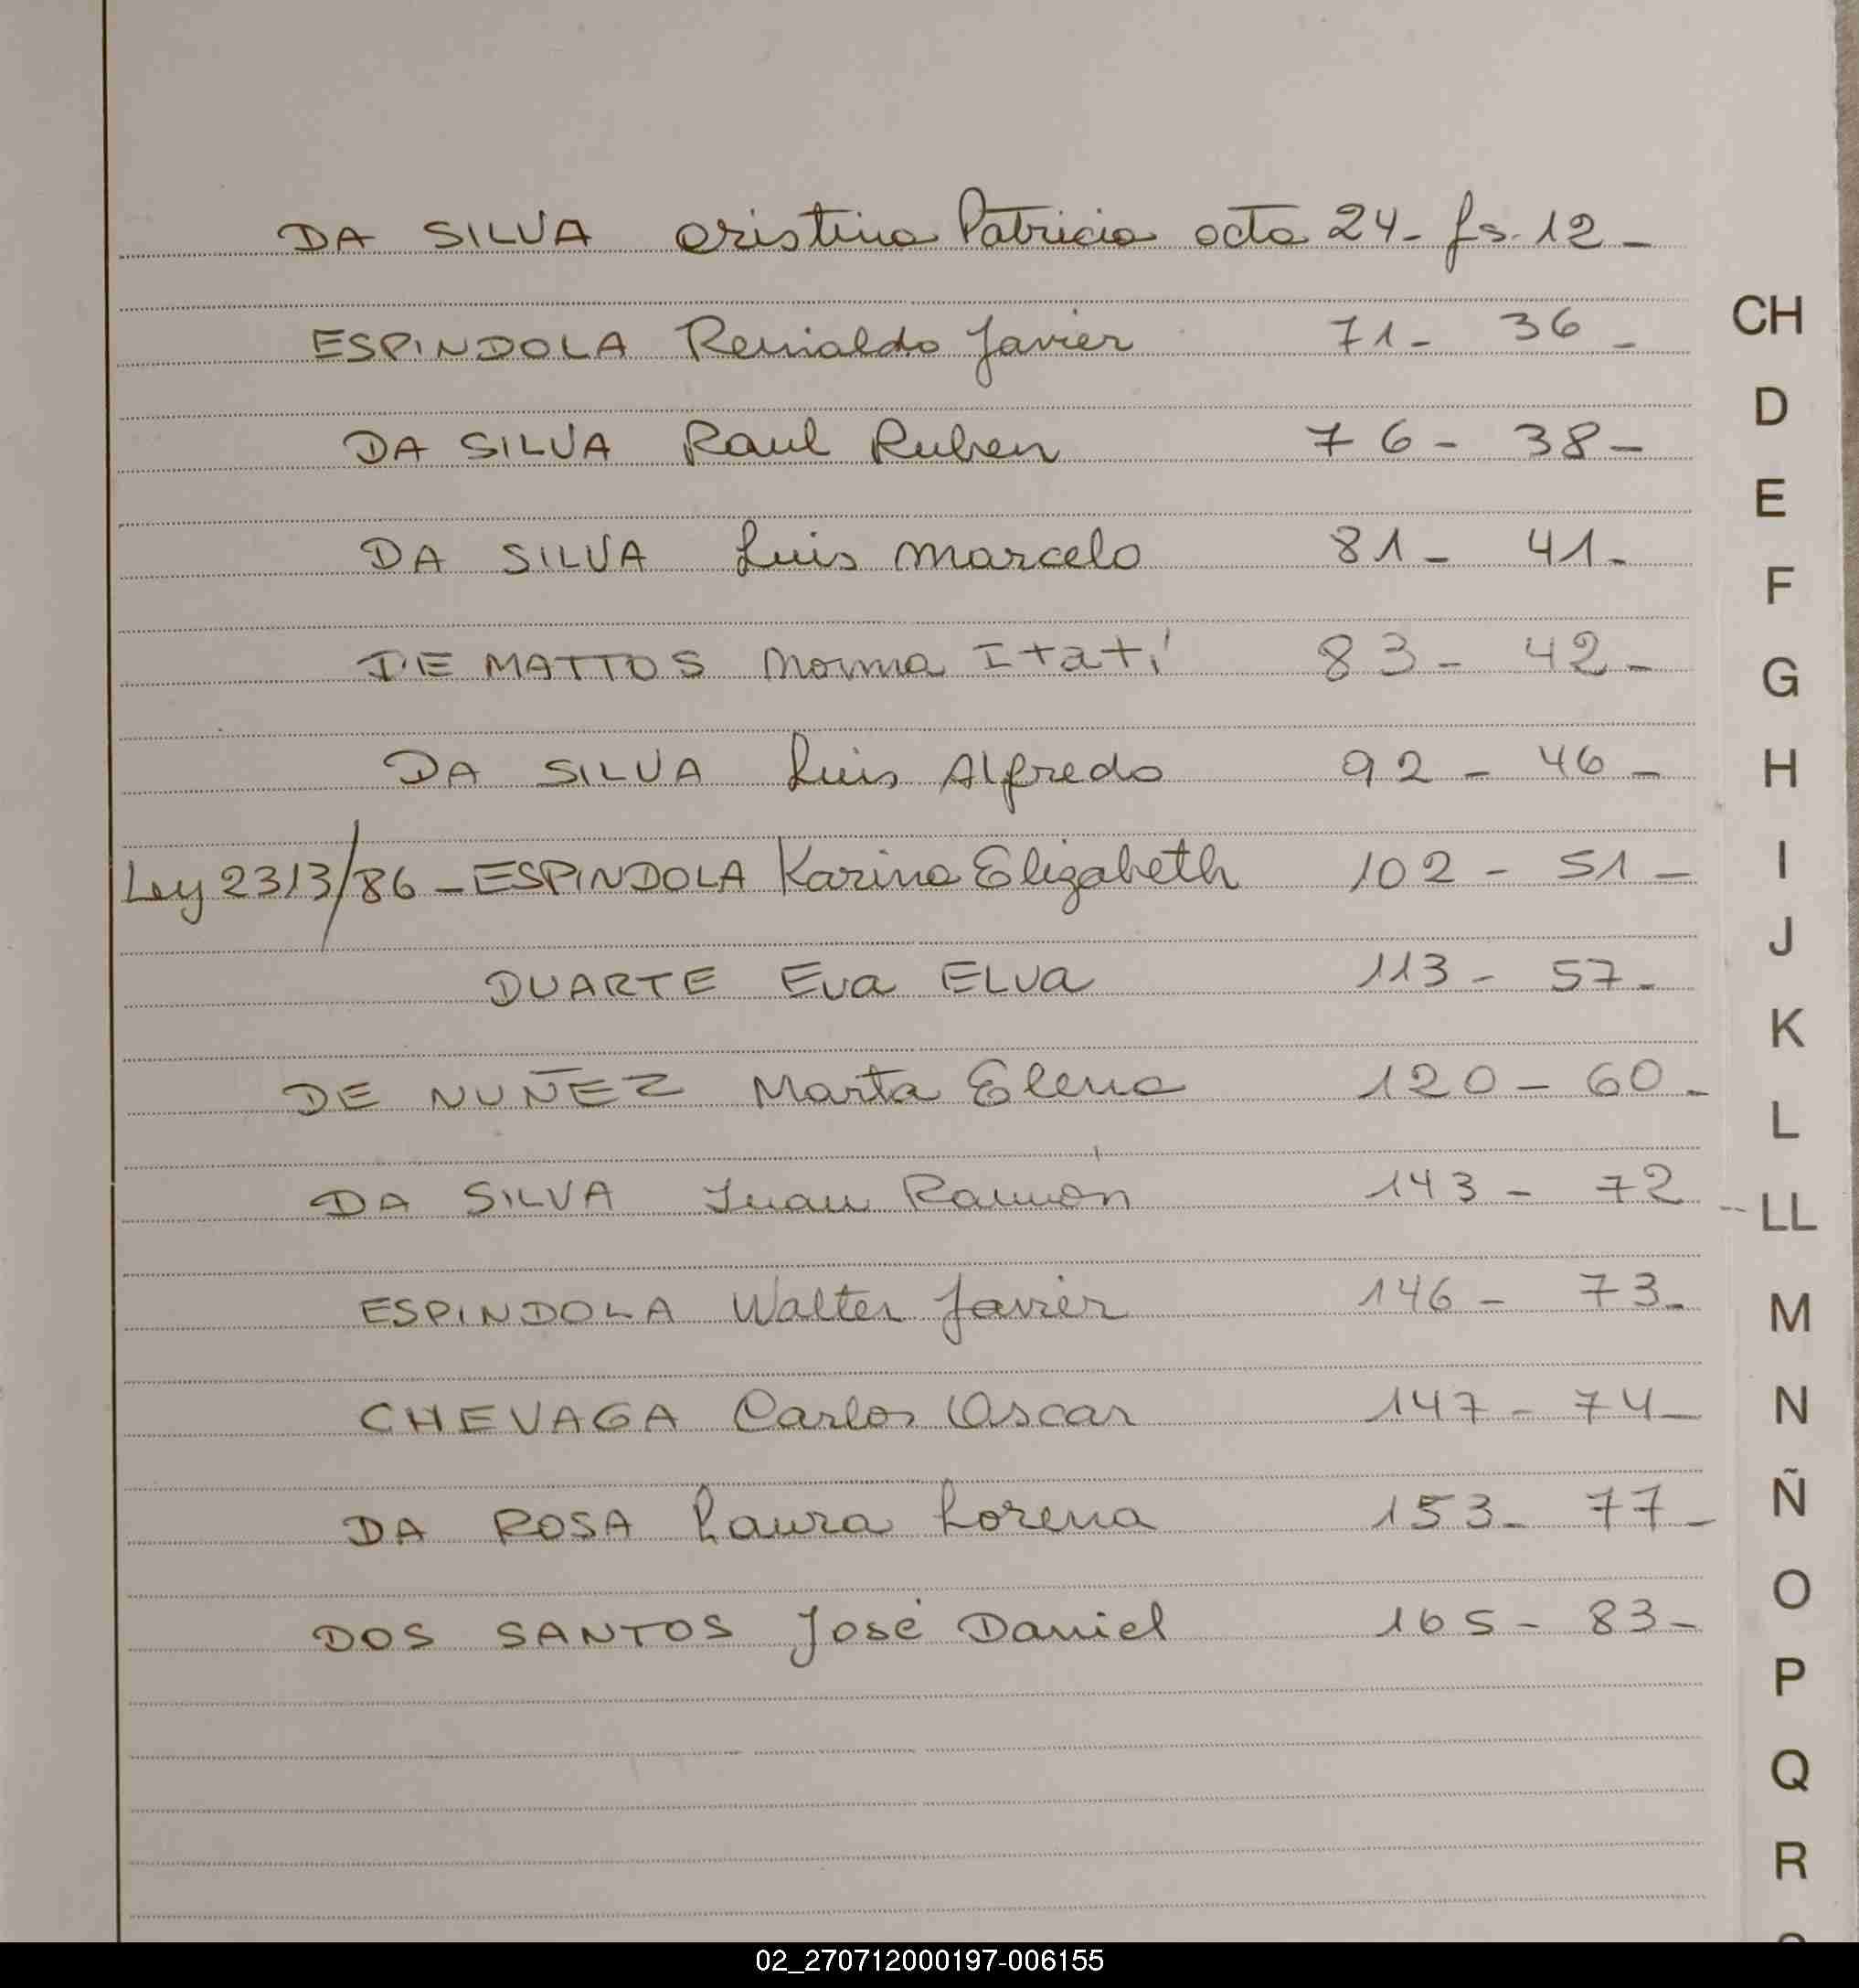 DA SILVA Cristina Patricia acta 24- fs. 12-
CH
ESPINDOLA Reinaldo Javier 71- 36-
D
DA SILVA Raul Ruben 76- 38-
E
DA SILVA Luis Marcelo 81- 41-
F
DE MATTOS Norma Itatí 83- 42-
G
DA SILVA Luis Alfredo 92- 46-
H
Ley 2313/86 - ESPINDOLA Karina Elizabeth 102- 51-
I
J
DUARTE Eva ELva 113- 57-
K
DE NUÑEZ Marta Elena 120- 60-
L
DA SILVA Juan Ramón 143- 72
LL
ESPINDOLA Walter Javier 146- 73-
M
CHEVAGA Carlos Oscar 147- 74-
N
Ñ
DA ROSA Laura Lorena 153- 77-
O
DOS SANTOS José Daniel 165- 83-
P
Q
R
02_270712000197-006155